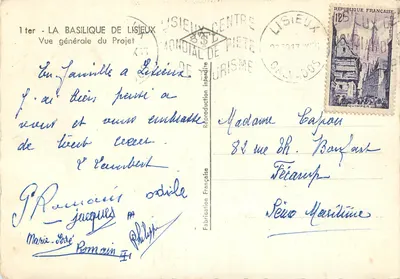 1 ter - LA BASILIQUE DE LISIEUX
Vue générale du Projet
LISIEUX CENTRE
MONDIAL DE PIÉTÉ
DE TOURISME
LISIEUX
CALVADOS
12F
En famille à Lisieux
J'ai bien pensé à
vous et vous embrasse
de tout cœur
P Romanis
odile
jacques
Marie-José
Romain
Philippe
Reproduction Interdite
Fabrication Française
Madame Capon
82 rue Ch.
Fécamp
Seine Maritime